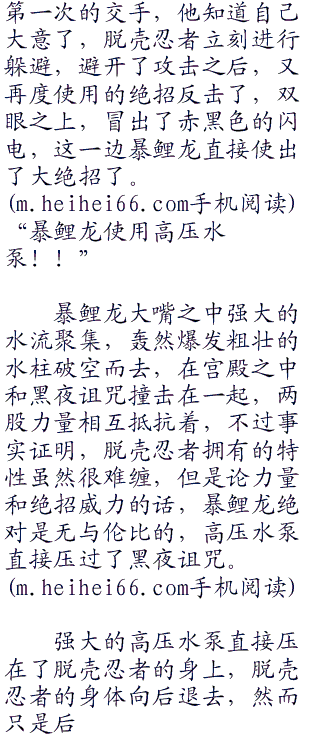 第一次的交手，他知道自己
大意了，脱壳忍者立刻进行
躲避，避开了攻击之后，又
再度使用的绝招反击了，双
眼之上，冒出了赤黑色的闪
电，这一边暴鲤龙直接使出
了大绝招了。
(m.heihei66.com手机阅读)
“暴鲤龙使用高压水
泵！！”
暴鲤龙大嘴之中强大的
水流聚集，轰然爆发粗壮的
水柱破空而去，在宫殿之中
和黑夜诅咒撞击在一起，两
股力量相互抵抗着，不过事
实证明，脱壳忍者拥有的特
性虽然很难缠，但是论力量
和绝招威力的话，暴鲤龙绝
对是无与伦比的，高压水泵
直接压过了黑夜诅咒。
(m.heihei66.com手机阅读)
强大的高压水泵直接压
在了脱壳忍者的身上，脱壳
忍者的身体向后退去，然而
只是后